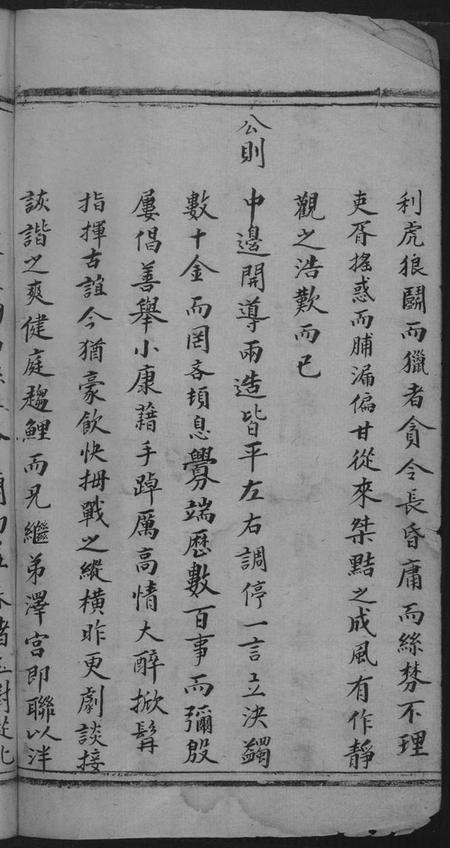 利虎狼鬭而獵者貪令長昏庸而絲棼不理
吏胥搖惑而脯漏偏甘從來桀黠之成風有作靜
觀之浩歎而已
公則中邊開導兩造皆平左右調停一言立決蠲
數十金而罔吝頓息釁端歷數百事而彌殷
屢倡善舉小康藉手踔厲高情大醉掀髯
指揮古誼今猶豪飲快拇戰之縱橫昨更劇談接
詼諧之爽健庭趨鯉而兄繼弟澤宮即聯以泮